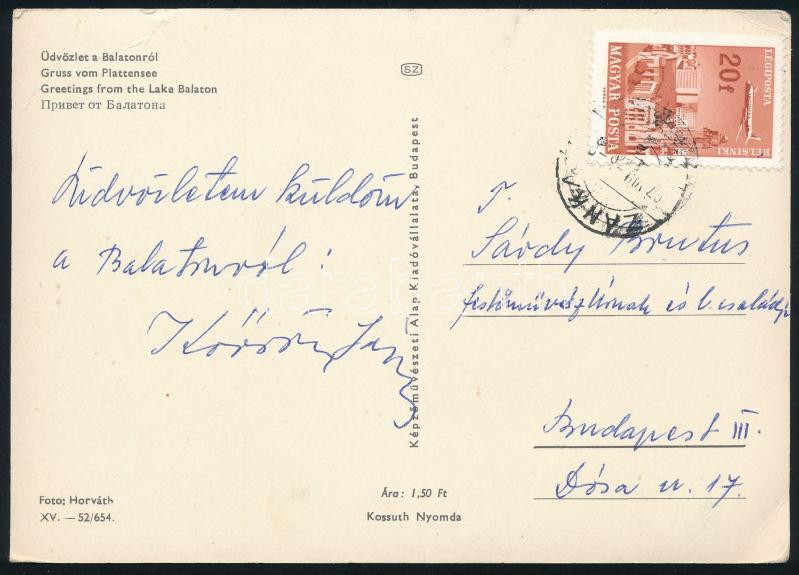 Üdvözlet a Balatonról
Gruss vom Plattensee
Greetings from the Lake Balaton
Привет от Балатона
SZ
LÉGIPOSTA
HELSINKI
20f
MAGYAR POSTA
ZÁNKA
Képzőművészeti Alap Kiadóvállalata, Budapest
Üdvözletem küldöm
a Balatonról:
T.
Sárdy Brutus
festőművész Úrnak és b. családja
Budapest III.
Dósa u. 17.
Foto: Horváth
XV. — 52/654.
Ára: 1,50 Ft
Kossuth Nyomda